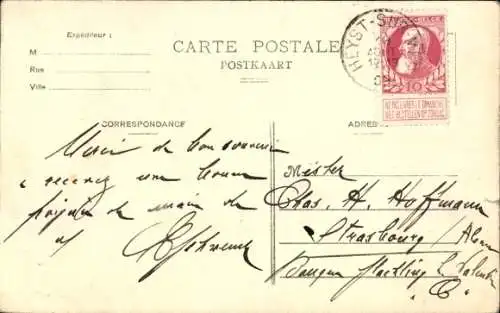 Expéditeur :
CARTE POSTALE
POSTKAART
M
Rue
Ville
HEYST-S
BELGIE
10
NE PAS LIVRER LE DIMANCHE
NIET BESTELLEN OP ZONDAG
CORRESPONDANCE
ADRES
Merci de bon souvenir
recevez une bonne
poignée de main de
Mister
Chas. H. Hoffmann
Strasbourg /
Banque L. Valentin
"C"